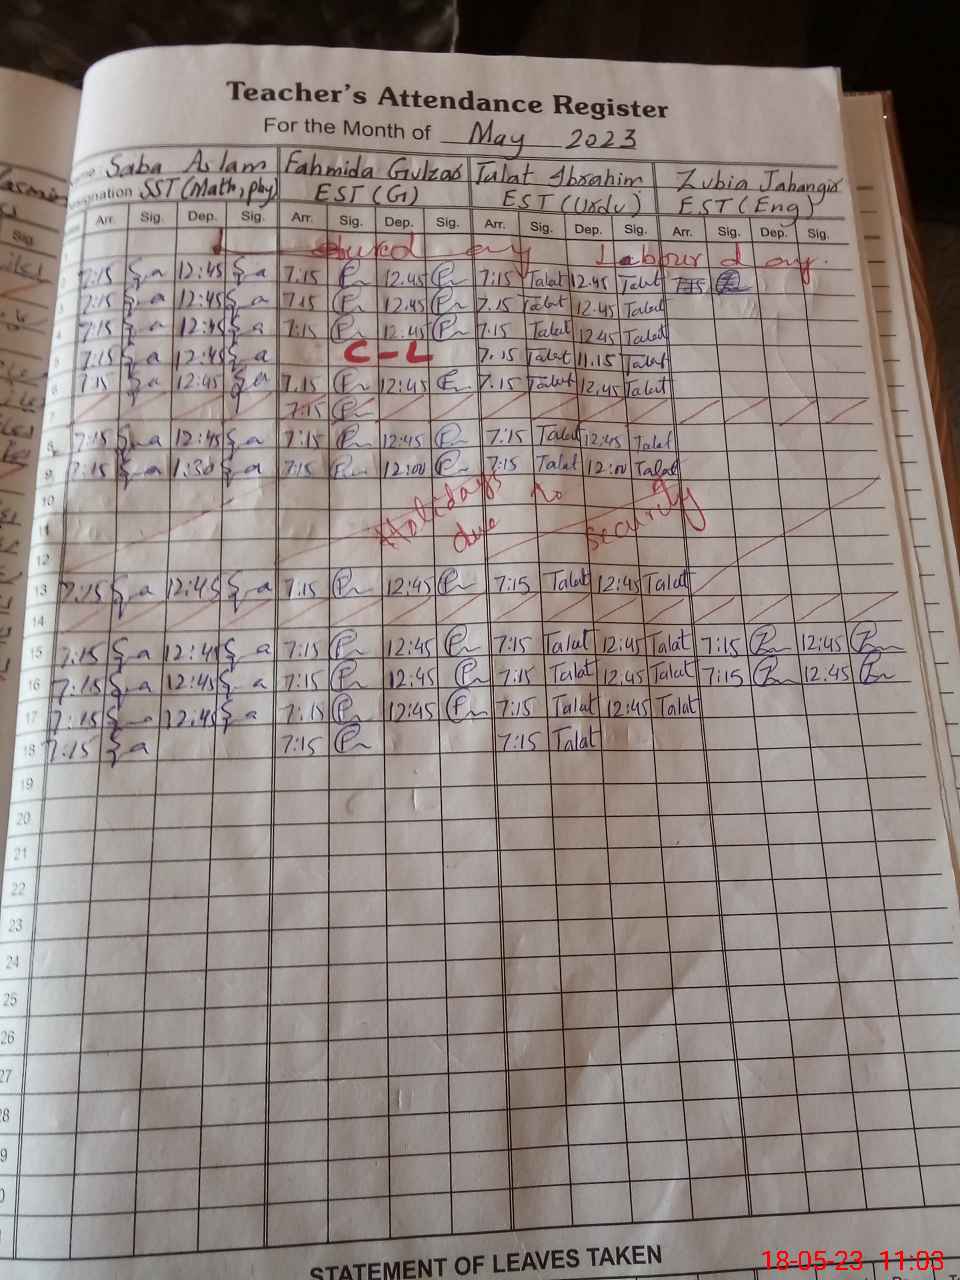 Teacher's Attendance Register
For the Month of May 2023
Saba Aslam Fahmida Gulzar Talat Ibrahim Zubia Jahangir
SST (Math, phy) EST (G) EST (Urdu) EST (Eng)
Arr. Sig. Dep. Sig. Arr. Sig. Dep. Sig. Arr. Sig. Dep. Sig. Arr. Sig. Dep. Sig.
Labour day.
7:15 12:45 7:15 12.45 7:15 Talat 12.45 Talat
7:15 12:45 7.15 12.45 7.15 Talat 12.45 Talat
4 7:15 12:45 7:15 12.45 7:15 Talat 12.45 Talat
7:15 12:45 C-L 7.15 Talat 11.15 Talat
6 7:15 12:45 7.15 12:45 7.15 Talat 12.45 Talat
7 7:15
8 7:15 12:45 7:15 12:45 7:15 Talat 12:45 Talat
9 7:15 1:30 7:15 12:00 7:15 Talat 12:00 Talat
10 Holidays to
11 due security
12
13 7:15 12:45 7:15 12:45 7:15 Talat 12:45 Talat
14
15 7:15 12:45 7:15 12:45 7:15 Talat 12:45 Talat 7:15 12:45
16 7:15 12:45 7:15 12:45 7:15 Talat 12:45 Talat 7:15 12:45
17 7:15 12:45 7:15 12:45 7:15 Talat 12:45 Talat
18 7:15 7:15 7:15 Talat
19
20
21
22
23
24
25
26
27
28
STATEMENT OF LEAVES TAKEN
18-05-23 11:03